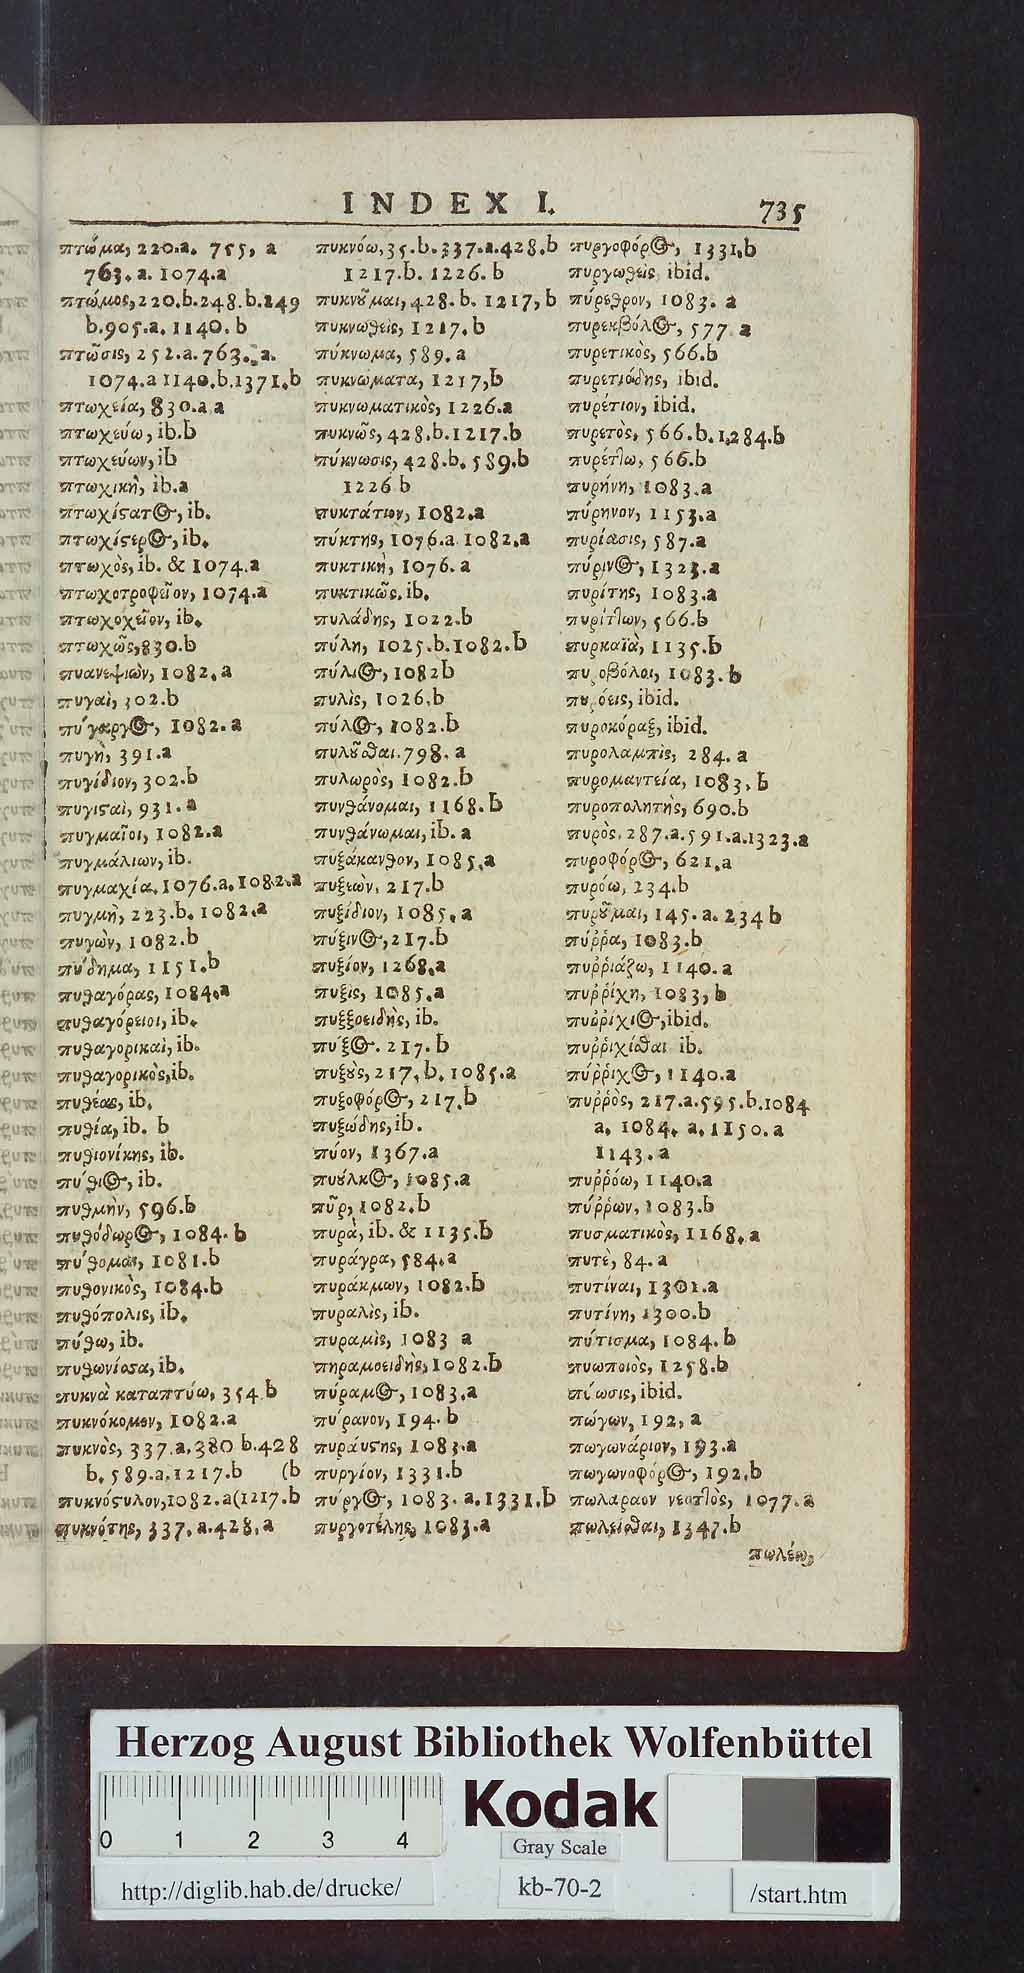 INDEX I. 735
πτῶμα, 220.a. 755, a
763. a. 1074.a
πτώμος, 220.b.248.b.249
b.905.a. 1140. b
πτῶσις, 252.a.763. a.
1074.a 1140.b.1371.b
πτωχεία, 830.a a
πτωχεύω, ib.b
πτωχεύων, ib
πτωχικὴ, ib.a
πτωχίϛατος, ib.
πτωχίϛερος, ib.
πτωχὸς, ib. & 1074.a
πτωχοτροφεῖον, 1074.a
πτωχοχεῖον, ib.
πτωχῶς, 830.b
πυανεψιὼν, 1082.a
πυγαὶ, 302.b
πύγαργος, 1082.a
πυγὴ, 391.a
πυγίδιον, 302.b
πυγιϛαὶ, 931.a
πυγμαῖοι, 1082.a
πυγμάλιων, ib.
πυγμαχία, 1076.a.1082.a
πυγμὴ, 223.b. 1082.a
πυγὼν, 1082.b
πύδημα, 1151.b
πυθαγόρας, 1084.a
πυθαγόρειοι, ib.
πυθαγορικαὶ, ib.
πυθαγορικὸς, ib.
πυθέας, ib.
πυθία, ib. b
πυθιονίκης, ib.
πύθιος, ib.
πυθμὴν, 596.b
πυθόδωρος, 1084. b
πύθομαι, 1081.b
πυθονικὸς, 1084.b
πυθόπολις, ib.
πύθω, ib.
πυθωνίοσα, ib.
πυκνὰ καταπτύω, 354 b
πυκνόκομον, 1082.a
πυκνὸς, 337.a.380 b.428
b. 589.a.1217.b (b
πυκνόϛυλον, 1082.a(1217.b
πυκνότης, 337. a.428.a
πυκνόω, 35.b.337.a.428.b
1217.b. 1226. b
πυκνοῦμαι, 428. b. 1217, b
πυκνωθεὶς, 1217.b
πύκνωμα, 589. a
πυκνώματα, 1217,b
πυκνωματικὸς, 1226.a
πυκνῶς, 428.b.1217.b
πύκνωσις, 428.b. 589.b
1226 b
πυκτάτιον, 1082.a
πύκτης, 1076.a 1082.a
πυκτικὴ, 1076. a
πυκτικῶς, ib.
πυλάδης, 1022.b
πύλη, 1025.b.1082.b
πύλιος, 1082b
πυλὶς, 1026.b
πύλος, 1082.b
πυλοῦσθαι. 798. a
πυλωρὸς, 1082.b
πυνθάνομαι, 1168.b
πυνθάνωμαι, ib. a
πυξάκανθον, 1085.a
πυξεὼν, 217.b
πυξίδιον, 1085.a
πύξινος, 217.b
πυξίον, 1268.a
πυξὶς, 1085.a
πυξξοειδὴς, ib.
πύξος. 217. b
πυξὸς, 217. b. 1085.a
πυξοφόρος, 217.b
πυξώδης, ib.
πύον, 1367.a
πυούλκος, 1085.a
πῦρ, 1082.b
πυρὰ, ib. & 1135.b
πυράγρα, 584.a
πυράκμων, 1082.b
πυραλὶς, ib.
πυραμὶς, 1083 a
πηραμοειδὴς, 1082.b
πύραμος, 1083.a
πύρανον, 194. b
πυράυϛης, 1083.a
πυργίον, 1331.b
πύργος, 1083. a.1331.b
πυργοτέλης, 1083.a
πυργοφόρος, 1331.b
πυργωθεὶς, ibid.
πύρεθρον, 1083. a
πυρεκβόλος, 577 a
πυρετικὸς, 566.b
πυρετιώδης, ibid.
πυρέτιον, ibid.
πυρετὸς, 566.b.1284.b
πυρέτλω, 566.b
πυρήνη, 1083.a
πύρηνον, 1153.a
πυρίασις, 587.a
πύρινος, 1323.a
πυρίτης, 1083.a
πυρίτλων, 566.b
πυρκαϊὰ, 1135.b
πυροβόλοι, 1083. b
πυρόεις, ibid.
πυροκόραξ, ibid.
πυρολαμπὶς, 284. a
πυρομαντεία, 1083. b
πυροπολητὴς, 690.b
πυρὸς, 287.a.591.a.1323.a
πυροφόρος, 621.a
πυρόω, 234.b
πυροῦμαι, 145. a. 234 b
πύῤῥα, 1083.b
πυῤῥιάζω, 1140.a
πυῤῥίχη, 1083, b
πυῤῥίχιος, ibid.
πυῤῥιχίσθαι ib.
πύῤῥιχος, 1140.a
πυῤῥὸς, 217.a.595.b.1084
a. 1084. a.1150.a
1143. a
πυῤῥόω, 1140.a
πύῤῥων, 1083.b
πυσματικὸς, 1168.a
πυτὲ, 84. a
πυτίναι, 1301.a
πυτίνη, 1300.b
πύτισμα, 1084. b
πυωποιὸς, 1258.b
πίωσις, ibid.
πώγων, 192, a
πωγωνάριον, 193.a
πωγωνοφόρος, 192.b
πωλαραον νεοτλὸς, 1077. a
πωλεῖσθαι, 1347.b
πωλέω,
Herzog August Bibliothek Wolfenbüttel
Kodak
0 1 2 3 4
Gray Scale
http://diglib.hab.de/drucke/ kb-70-2 /start.htm